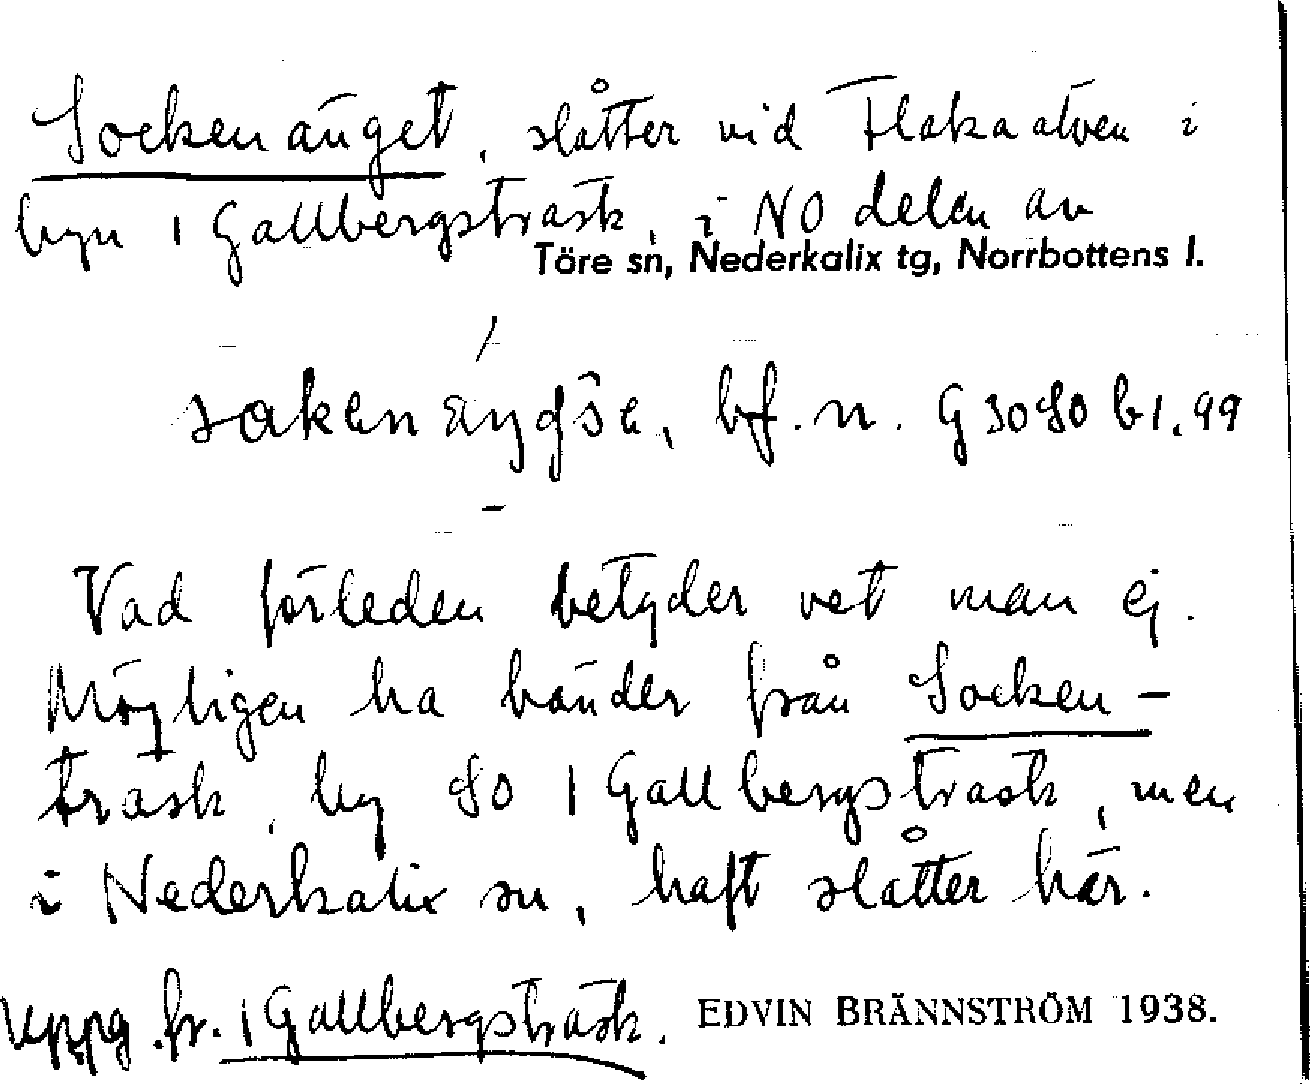 Sockenänget, slåtter vid Flakaälven i
byn 1 Gällbergsträsk, i NO delen av
Töre sn, Nederkalix tg, Norrbottens l.
bf. n. G 3080 b 1.99
Vad förleden betyder vet man ej.
Möjligen ha bönder från Socken-
träsk, by SO 1 Gällbergsträsk, men
i Nederkalix sn, haft slåtter här.
Uppg. fr. 1 Gällbergsträsk. EDVIN BRÄNNSTRÖM 1938.